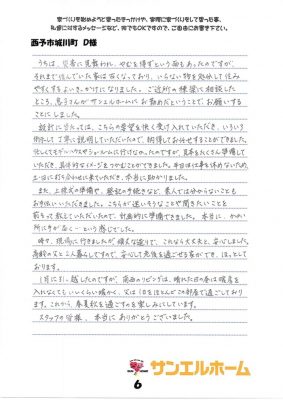 家づくりを始めようと思ったきっかけや、実際に家づくりをして思った事、
私達に対するメッセージなど、何でもOKですので、ご自由にお書き下さい。
西予市城川町 D様
うちは、災害に見舞われ、やむを得ずという面もあったのですが、
それまで住んでいた家は古くなっており、いらない物を処分して住み
やすくするよいきっかけになりました。ご近所の棟梁に相談した
ところ、息子さんがサンエルホームにお勤めだということで、お願いする
ことにしました。
設計に当たっては、こちらの希望を快く受け入れていただき、いろいろ
例示して丁寧に説明していただいたので、納得してお任せすることができました。
忙しくてモデルハウスやショールームに行けなかったのですが、見本をたくさん準備して
いただき、具体的なイメージをつかむことができました。平日は仕事を休めないため
土日に打ち合わせに来ていただき、本当に助かりました。
また、上棟式の準備や、登記の手続きなど、素人では分からないことも
お手伝いいただきました。こちらが迷いそうなことや聞きたいことを
前もって教えていただいたので、計画的に準備できました。本当に、かゆい
所に手が届く…という感じでした。
時々、現場に行きましたが頑丈な造りで、これなら大丈夫と、安心しました。
高齢の父と二人暮らしですので、安心して老後を過ごせる家ができ、ほっとして
おります。
1月に引っ越したのですが、南西のリビングは、晴れた日の昼は暖房を
入れなくてもいいくらい暖かく、父は1日をほとんどこの部屋で過ごしており
ます。これから、春夏秋を過ごすのを楽しみにしています。
スタッフの皆様、本当にありがとうございました。
サンエルホーム
6